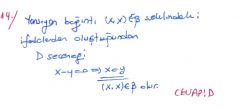 14/ Yansıyan bağıntı (x,x)∈β şeklindeki
ifadelerden oluştuğundan
D seçeneği
x-y=0 ⇒ x=y
(x,x)∈β olur.
CEVAP: D